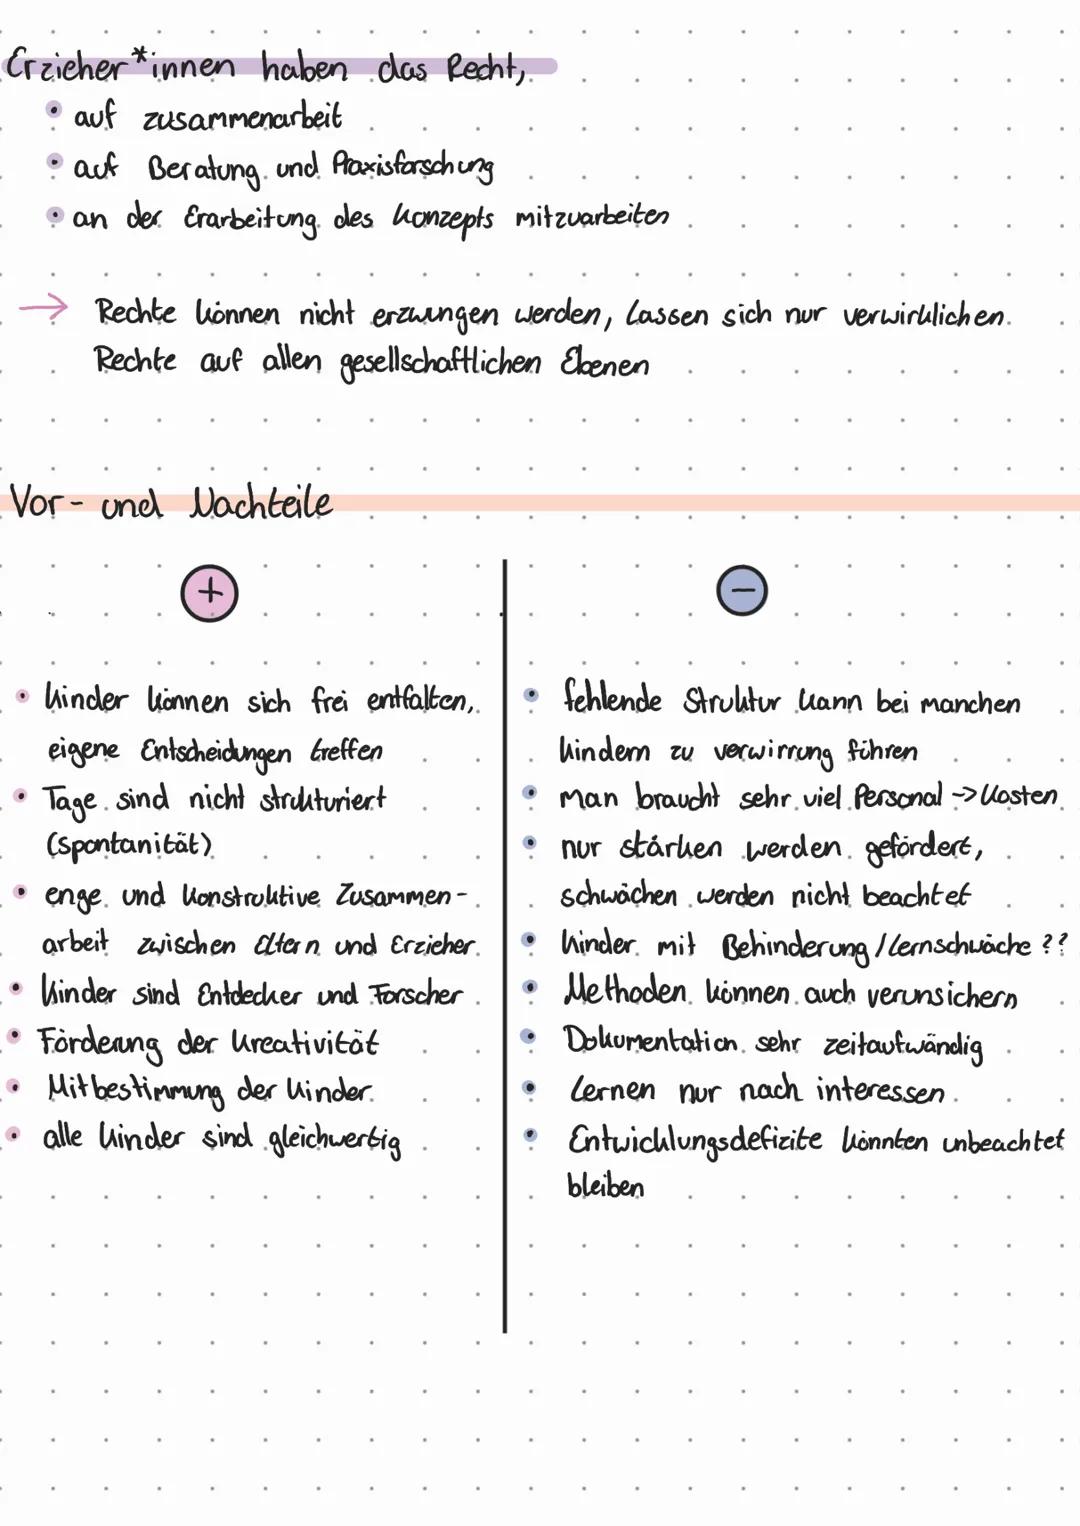 Erzieher*innen haben das Recht,
• auf zusammenarbeit
• auf Beratung und Praxisforschung
• an der Erarbeitung des Konzepts mitzuarbeiten
→ Rechte können nicht erzwungen werden, lassen sich nur verwirklichen.
Rechte auf allen gesellschaftlichen Ebenen
Vor- und Nachteile
+
• Kinder können sich frei entfalten,
eigene Entscheidungen treffen
• Tage sind nicht strukturiert
(Spontanität)
• enge und konstruktive Zusammen-
arbeit zwischen Eltern und Erzieher
• Kinder sind Entdecker und Forscher
• Förderung der Kreativität
• Mitbestimmung der Kinder
• alle Kinder sind gleichwertig
−
• fehlende Struktur kann bei manchen
Kindern zu verwirrung führen
• man braucht sehr viel Personal → Kosten
• nur stärken werden gefördert,
schwächen werden nicht beachtet
• Kinder mit Behinderung / Lernschwäche ??
• Methoden können auch verunsichern
• Dokumentation sehr zeitaufwändig
• Lernen nur nach interessen
• Entwicklungsdefizite könnten unbeachtet
bleiben